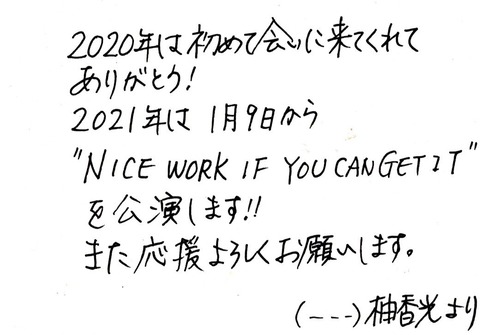 2020年は初めて会いに来てくれて
ありがとう!
2021年は 1月9日から
"NICE WORK IF YOU CAN GET IT"
を公演します!!
また応援よろしくお願いします。
(---)柚香光より